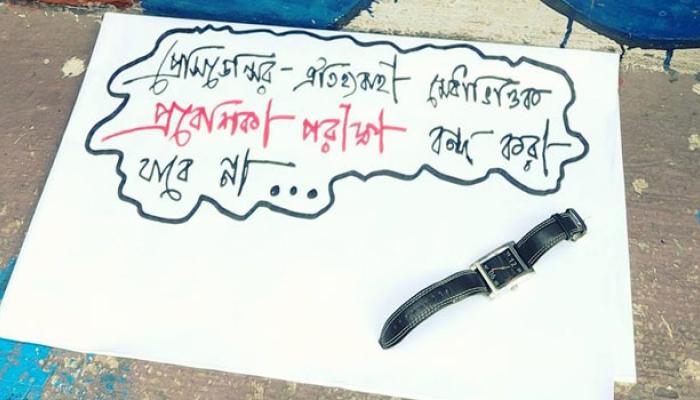 প্রেসিডেন্সির - ঐতিহ্যবাহী মেধাভিত্তিক
প্রবেশিকা পরীক্ষা বন্ধ করা
যাবে না ...